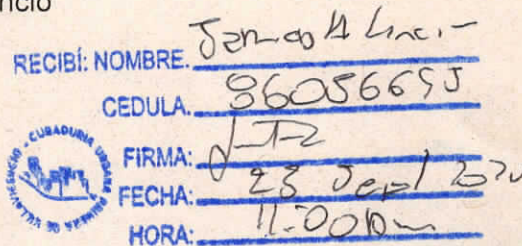 ncio
RECIBÍ: NOMBRE.
CEDULA. 86056695
FIRMA:
FECHA: 23 Sept 2020
HORA: 11:00am
CURADURIA URBANA PRIMERA DE VILLAVICENCIO